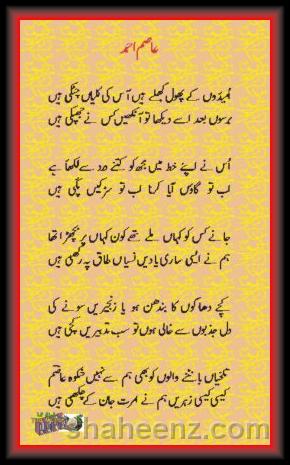 عاصم احمد
اُمیدوں کے پھول کھلے ہیں آس کی کلیاں چٹکی ہیں
برسوں بعد اسے دیکھا تو آنکھیں کس نے جھپکی ہیں
اُس نے اپنے خط میں مجھ کو کتنے مدد سے لکھا ہے
اب تو گاؤں آیا کرنا اب تو سڑکیں پکی ہیں
جانے کس کو کہاں ملے تھے کون کہاں پر بچھڑا تھا
ہم نے ایسی ساری یادیں نسیاں طاق پہ رکھی ہیں
کچے دھاگوں کا بندھن ہو یا زنجیریں سونے کی
دل جذبوں سے خالی ہوں تو سب تدبیریں کچی ہیں
تلخیاں بانٹنے والوں کو بھی ہم سے نہیں شکوہ عاصم
کیسی کیسی زہریں ہم نے امرت جان کے چکھی ہیں
shaheenz.com